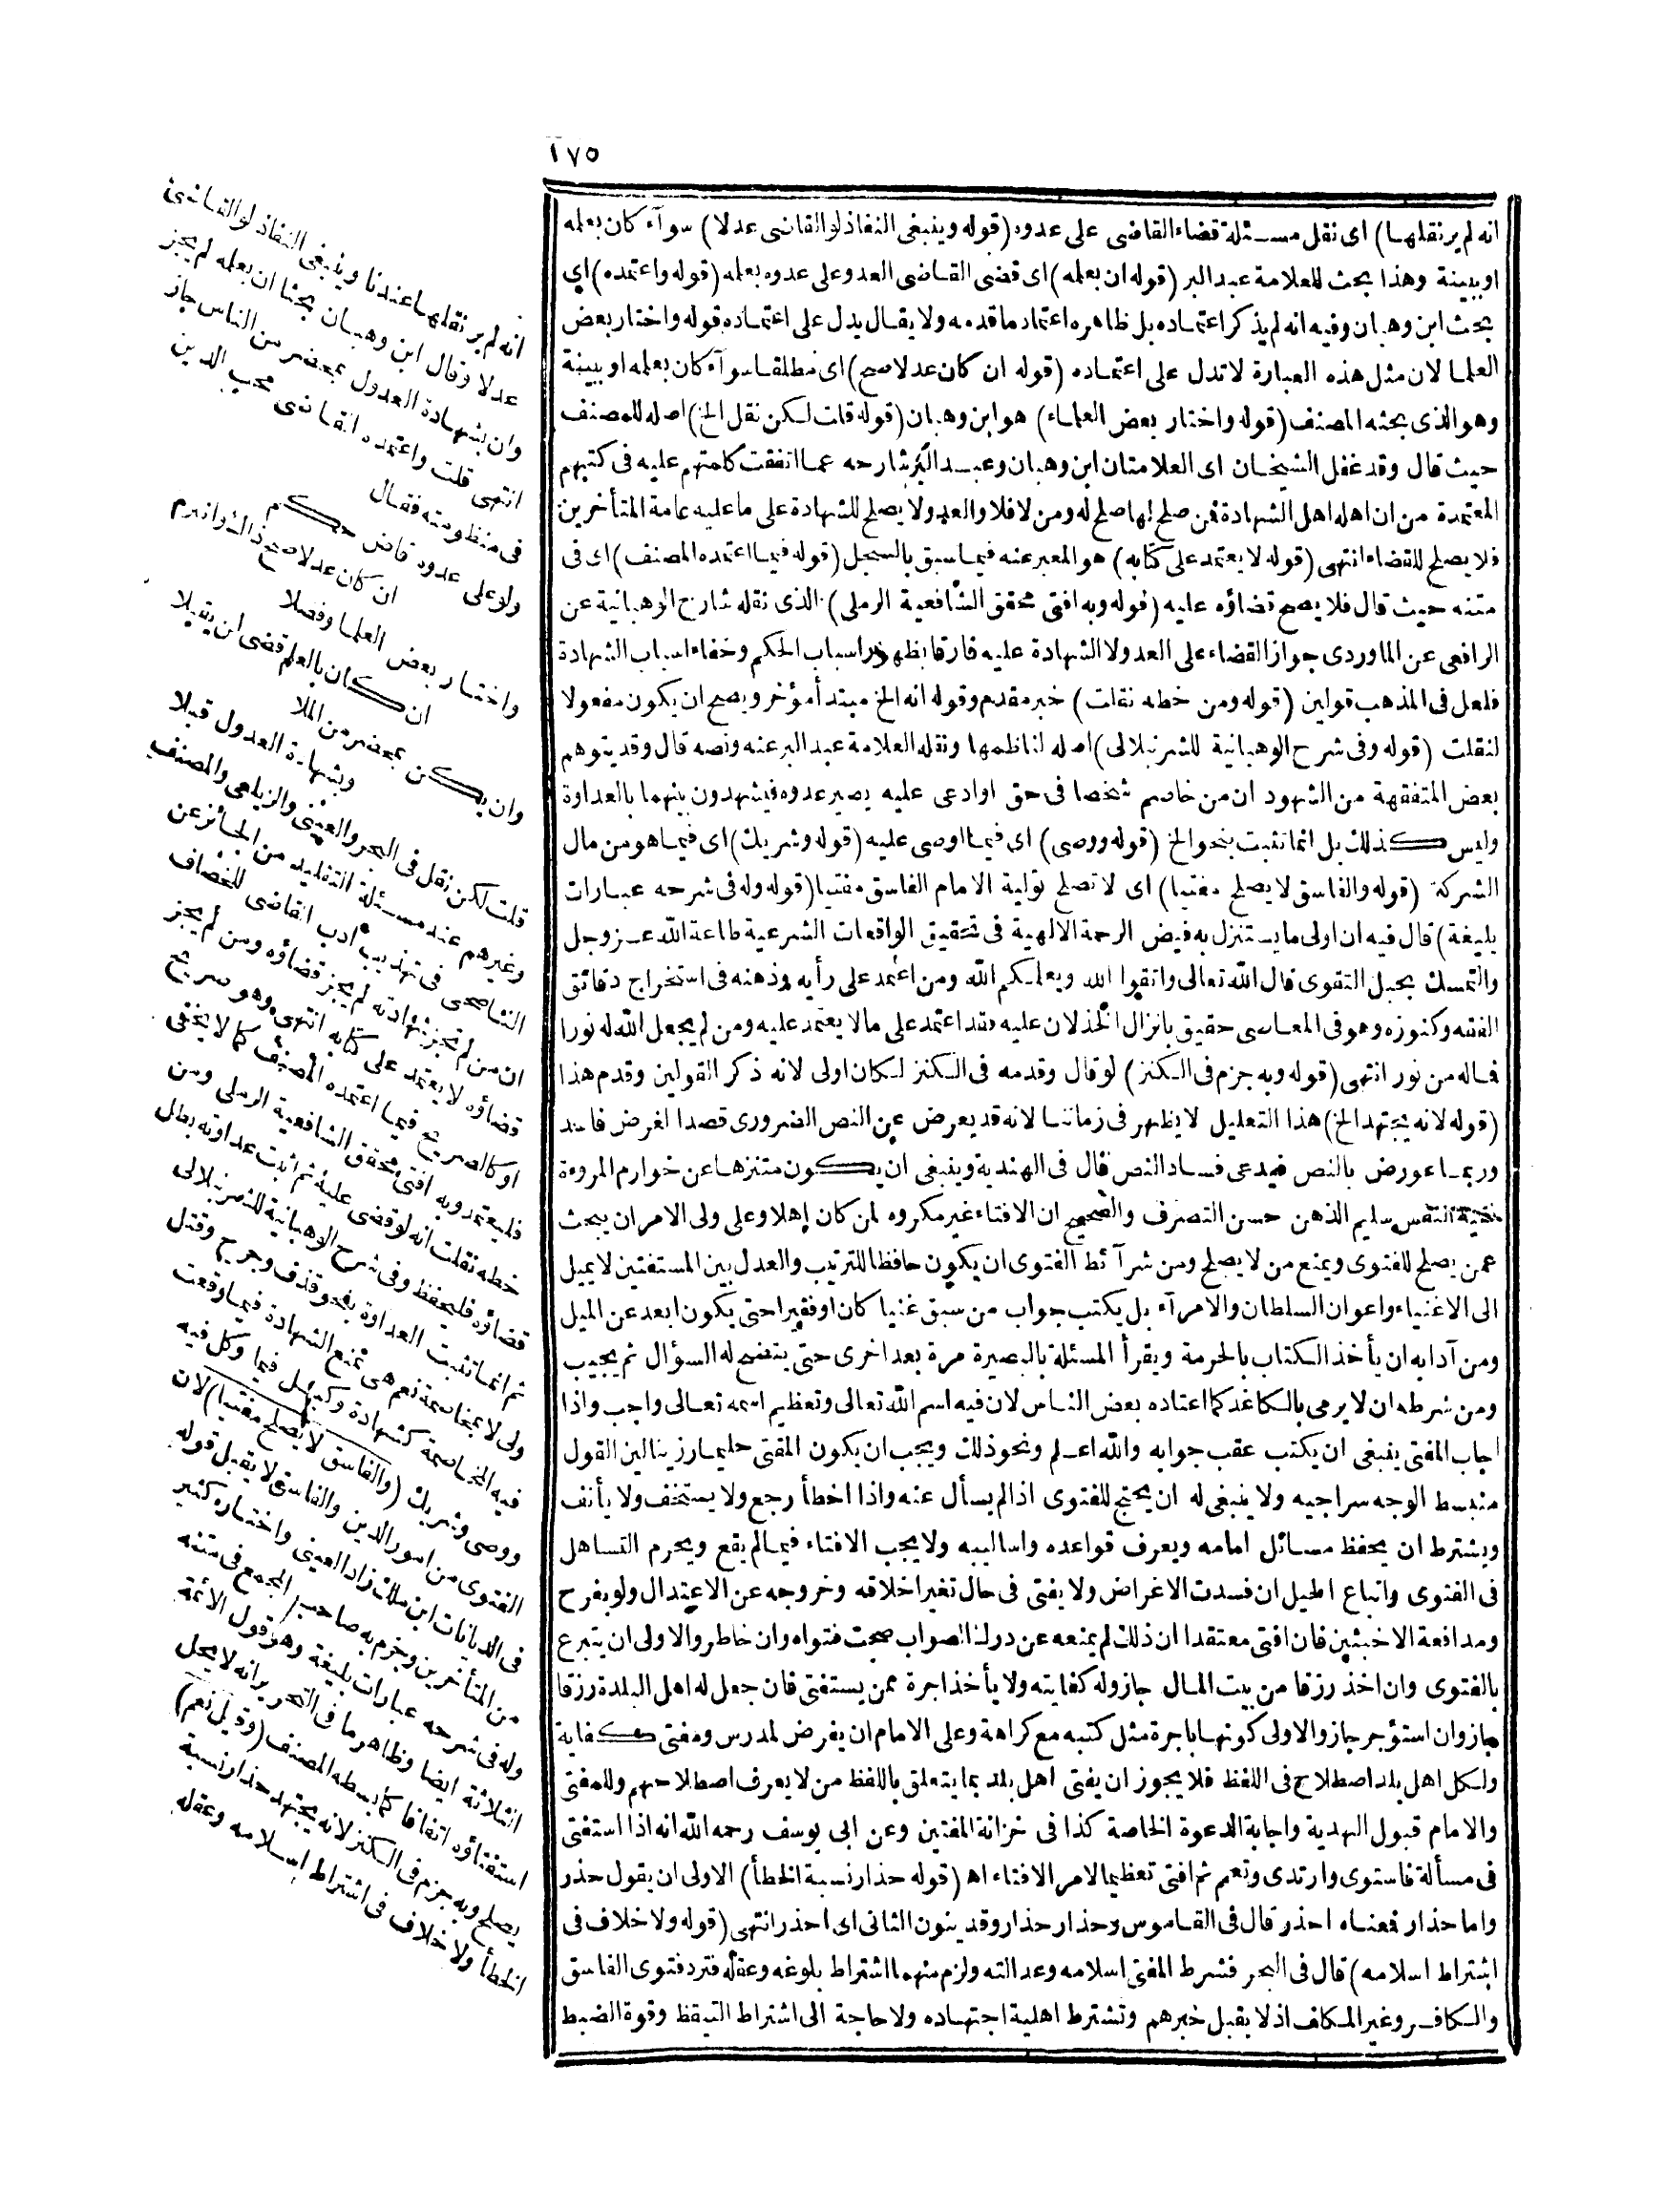 ١٧٥
انه لم ير نقلها) اى نقل مسئلة قضاء القاضى على عدوه (قوله وينبغى النفاذ لو القاضى عدلا) سوآء كان بعلمه
او ببينة وهذا بحث للعلامة عبد البر (قوله ان بعلمه) اى قضى القاضى العدو على عدوه بعلمه (قوله واعتمده) اى
بحث ابن وهبان وفيه انه لم يذكر اعتماده بل ظاهره اعتماد ما قدمه ولا يقال يدل على اعتماده قوله واختار بعض
العلما لان مثل هذه العبارة لا تدل على اعتماده (قوله ان كان عدلا صح) اى مطلقا سوآء كان بعلمه او ببينة
وهو الذى بحثه المصنف (قوله واختار بعض العلماء) هو ابن وهبان (قوله قلت لكن نقل الخ) اصله للمصنف
حيث قال وقد غفل الشيخان اى العلامتان ابن وهبان وعبد البر شارحه عما اتفقت كلمتهم عليه فى كتبهم
المعتمدة من ان اهله اهل الشهادة فمن صلح لها صلح له ومن لا فلا والعدو لا يصلح للشهادة على ما عليه عامة المتأخرين
فلا يصلح للقضاء انتهى (قوله لا يعتمد على كتابه) هو المعبر عنه فيما سبق بالسجل (قوله فيما اعتمده المصنف) اى فى
متنه حيث قال فلا يصح قضاؤه عليه (قوله وبه افتى محقق الشافعية الرملى) الذى نقله شارح الوهبانية عن
الرافعى عن الماوردى جواز القضاء على العدو لا الشهادة عليه فارقا بظهور اسباب الحكم وخفاء اسباب الشهادة
فلعل فى المذهب قولين (قوله ومن خطه نقلت) خبر مقدم وقوله انه الخ مبتدأ مؤخر ويصح ان يكون مفعولا
لنقلت (قوله وفى شرح الوهبانية للشرنبلالى) اصله لناظمها ونقله العلامة عبد البر عنه ونصه قال وقد يتوهم
بعض المتفقهة من الشهود ان من خاصم شخصا فى حق او ادعى عليه يصير عدوه فيشهدون بينهما بالعداوة
وليس كذلك بل انما تثبت بنحو الخ (قوله ووصى) اى فيما اوصى عليه (قوله وشريك) اى فيما هو من مال
الشركة (قوله والفاسق لا يصلح مفتيا) اى لا تصلح تولية الامام الفاسق مفتيا (قوله وله فى شرحه عبارات
بليغة) قال فيه ان اولى ما يستنزل به فيض الرحمة الالهية فى تحقيق الواقعات الشرعية طاعة الله عز وجل
والتمسك بحبل التقوى قال الله تعالى واتقوا الله ويعلمكم الله ومن اعتمد على رأيه وذهنه فى استخراج دقائق
الفقه وكنوزه وهو فى المعاصى حقيق بانزال الخذلان عليه فقد اعتمد على ما لا يعتمد عليه ومن لم يجعل الله له نورا
فاله من نور انتهى (قوله وبه جزم فى الكنز) لو قال وقدمه فى الكنز لكان اولى لانه ذكر القولين وقدم هذا
(قوله لانه يجتهد الخ) هذا التعليل لا يظهر فى زماننا لانه قد يعرض عن النص الضرورى قصدا لغرض فاسد
وربما عورض بالنص فيدعى فساد النص قال فى الهندية وينبغى ان يكون متنزها عن خوارم المروءة
النفس سليم الذهن حسن التصرف والصحيح ان الافتاء غير مكروه لمن كان اهلا وعلى ولى الامر ان يبحث
عمن يصلح للفتوى ويمنع من لا يصلح ومن شرآئط الفتوى ان يكون حافظا للترتيب والعدل بين المستفتين لا يميل
الى الاغنياء واعوان السلطان والامرآء بل يكتب جواب من سبق غنيا كان او فقيرا حتى يكون ابعد عن الميل
ومن آدابه ان يأخذ الكتاب بالحرمة ويقرأ المسئلة بالبصيرة مرة بعد اخرى حتى يتضح له السؤال ثم يجيب
ومن شرطه ان لا يرمى بالكاغد كما اعتاده بعض الناس لان فيه اسم الله تعالى وتعظيم اسمه تعالى واجب واذا
اجاب المفتى ينبغى ان يكتب عقب جوابه والله اعلم ونحو ذلك ويجب ان يكون المفتى حليما رزينا لين القول
منبسط الوجه سراجيه ولا ينبغى له ان يحتج للفتوى اذا لم يسأل عنه واذا اخطأ رجع ولا يستخف ولا يأنف
ويشترط ان يحفظ مسائل امامه ويعرف قواعده واساليبه ولا يجب الافتاء فيما لم يقع ويحرم التساهل
فى الفتوى واتباع الحيل ان فسدت الاغراض ولا يفتى فى حال تغير اخلاقه وخروجه عن الاعتدال ولو بفرح
ومدافعة الاخبثين فان افتى معتقدا ان ذلك لم يمنعه عن درك الصواب صحت فتواه وان خاطر والاولى ان يتبرع
بالفتوى وان اخذ رزقا من بيت المال جاز وله كفايته ولا يأخذ اجرة ممن يستفتى فان جعل له اهل البلدة رزقا
جاز وان استؤجر جاز والاولى كونها باجرة مثل كتبه مع كراهة وعلى الامام ان يفرض لمدرس ومفتى كفاية
ولكل اهل بلد اصطلاح فى اللفظ فلا يجوز ان يفتى اهل بلد بما يتعلق باللفظ من لا يعرف اصطلاحهم وللمفتى
والامام قبول الهدية واجابة الدعوة الخاصة كذا فى خزانة المفتين وعن ابى يوسف رحمه الله انه اذا استفتى
فى مسألة فاستوى وارتدى وتعمم ثم افتى تعظيما لامر الافتاء اهـ (قوله حذار نسبة الخطأ) الاولى ان يقول حذر
واما حذار فمعناه احذر قال فى القاموس وحذار حذار وقد ينون الثانى اى احذر انتهى (قوله ولا خلاف فى
اشتراط اسلامه) قال فى البحر فشرط المفتى اسلامه وعدالته ولزم منهما اشتراط بلوغه وعقله فترد فتوى الفاسق
والكافر وغير المكلف اذ لا يقبل خبرهم وتشترط اهلية اجتهاده ولا حاجة الى اشتراط التيقظ وقوة الضبط
انه لم ير نقلها عندنا وينبغى النفاذ لو القاضى
عدلا وقال ابن وهبان بحثا ان بعلمه لم يجز
وان بشهادة العدول بمحضر من الناس جاز
انتهى قلت واعتمده القاضى محب الدين
فى منظومته فقال
ولو على عدوه قاض حكم
ان كان عدلا صح ذا وانبرم
واختار بعض العلما وفصلا
ان كان بالعلم قضى لن يقبلا
وان يكن بمحضر من الملا
وبشهادة العدول قبلا
قلت لكن نقل فى البحر والعينى والزيلعى والمصنف
وغيرهم عند مسئلة التقليد من الجائز عن
الناصحى فى تهذيب ادب القاضى للخصاف
ان من لم تجز شهادته لم يجز قضاؤه ومن لم يجز
قضاؤه لا يعتمد على كتابه انتهى وهو صريح
او كالصريح فيما اعتمده المصنف كما لا يخفى
فليعتمد وبه افتى محقق الشافعية الرملى ومن
خطه نقلت انه لو قضى عليه ثم اثبت عداوته بطل
قضاؤه فليحفظ وفى شرح الوهبانية للشرنبلالى
ثم انما تثبت العداوة بنحو قذف وجرح وقتل
ولى لا بمخاصمة نعم هى تمنع الشهادة فيما وقعت
فيه المخاصمة كشهادة وكيل فيما وكل فيه
ووصى وشريك (والفاسق لا يصلح مفتيا) لان
الفتوى من امور الدين والفاسق لا يقبل قوله
فى الديانات ابن ملك زاد العينى واختاره كثير
من المتأخرين وجزم به صاحب المجمع فى متنه
وله فى شرحه عبارات بليغة وهو قول الائمة
الثلاثة ايضا وظاهر ما فى التحرير انه لا يحل
استفتاؤه اتفاقا كما بسطه المصنف (وقيل نعم)
يصلح وبه جزم فى الكنز لانه يجتهد حذار نسبة
الخطأ ولا خلاف فى اشتراط اسلامه وعقله